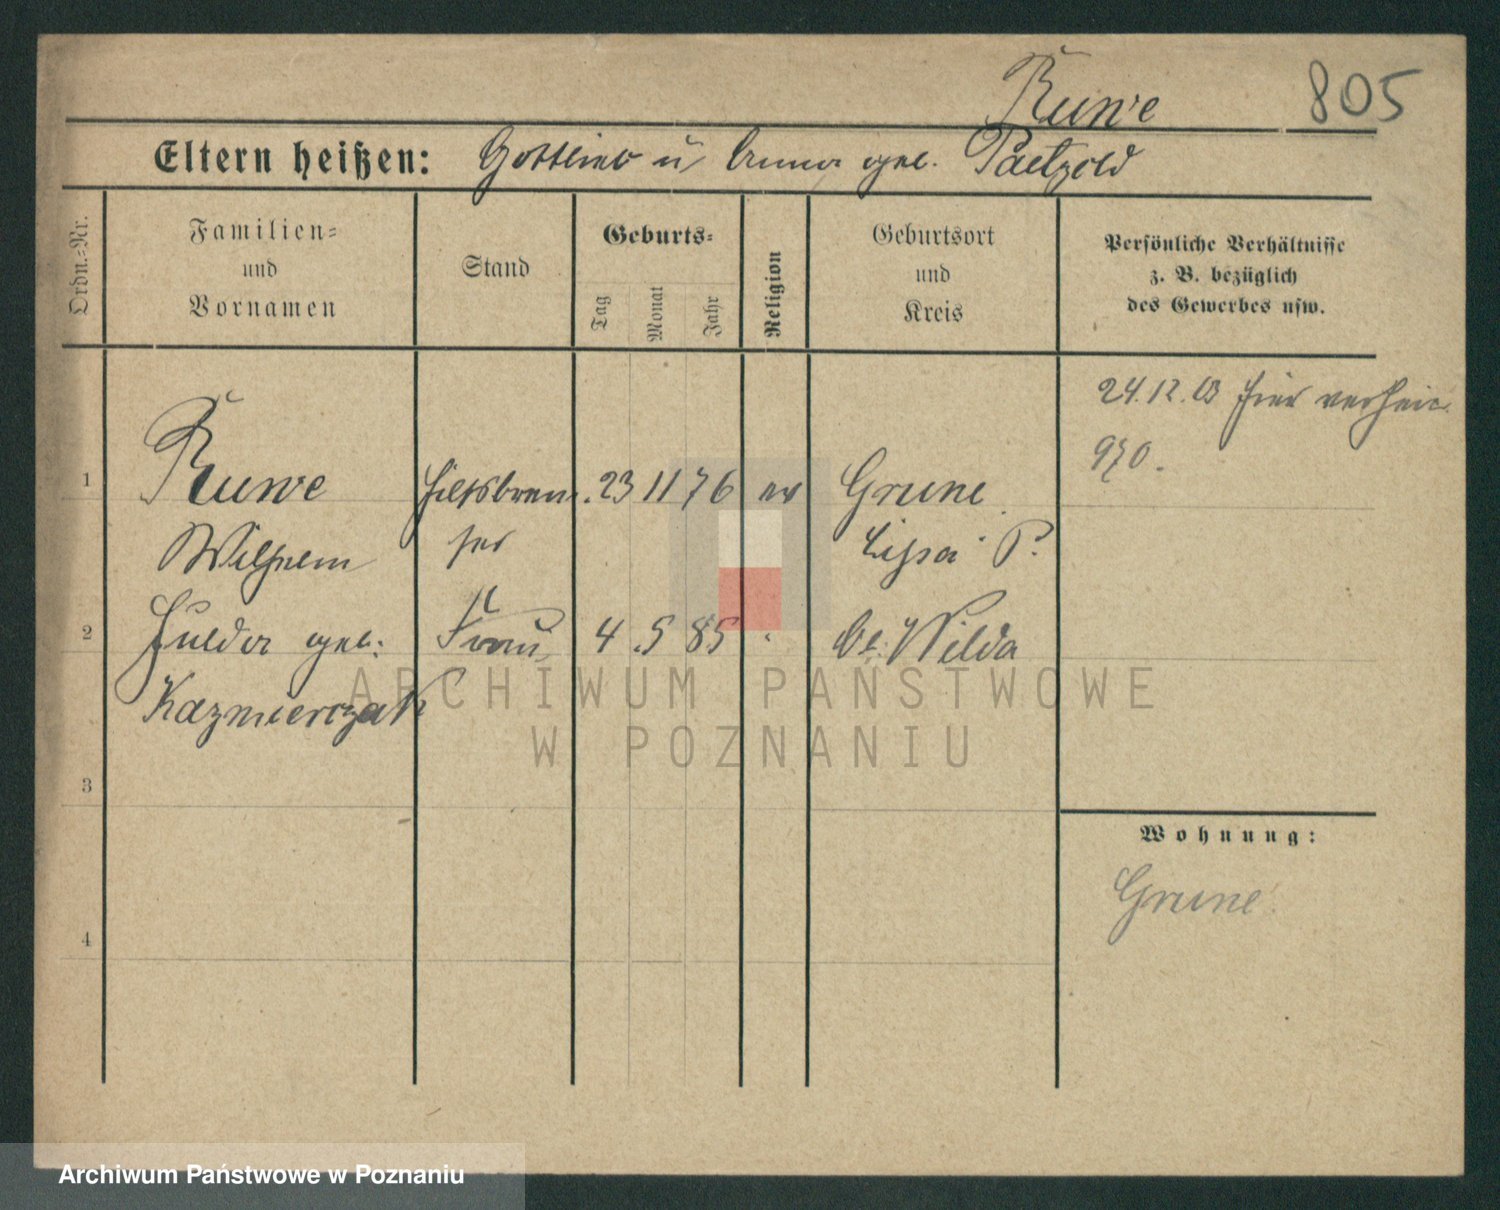 Ruwe 805
Eltern heißen: Gottlieb u Anna geb. Paetzold
Ordn.-Nr.
Familien-
und
Vornamen
Stand
Geburts-
Tag
Monat
Jahr
Religion
Geburtsort
und
Kreis
Persönliche Verhältnisse
z. B. bezüglich
des Gewerbes usw.
24.12.03 hier verheir.
970.
1 Ruwe Hilfsbrem- 23 11 76 ev Grune
Wilhelm ser Lissa P.
2 Hulda geb. Frau 4 5 85 Wilda
Kazmierczak
3
Wohnung:
Grune
4
ARCHIWUM PAŃSTWOWE
W POZNANIU
Archiwum Państwowe w Poznaniu